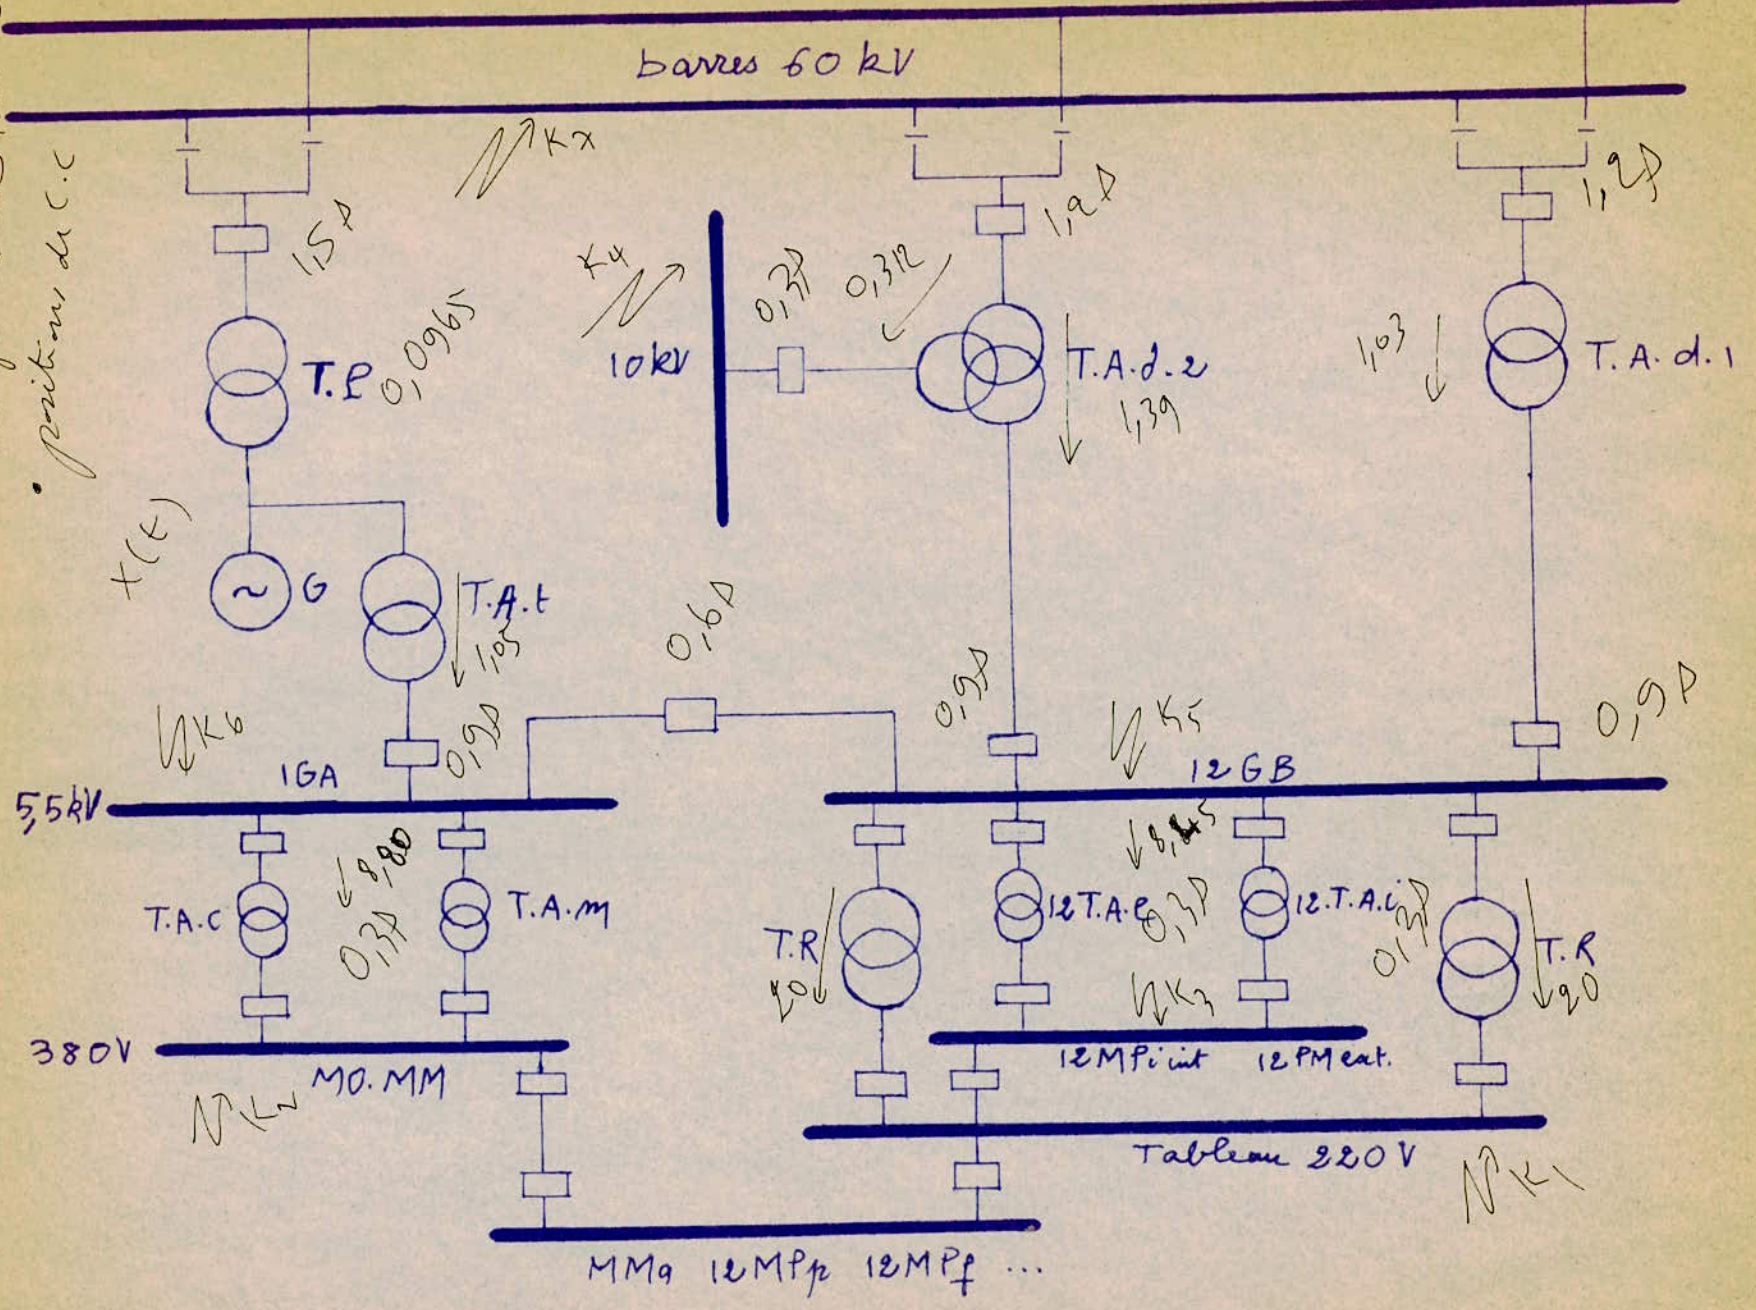 barres 60 kV
K7
positions de C.C
1,5s
1,2s
1,2s
K4
0,3s
0,312
10 kV
T.P
0,0965
T.A.d.2
1,39
1,03
T.A.d.1
X(t)
G
T.A.t
1,05
0,6s
K6
0,9s
0,9s
K5
0,9s
1GA
12GB
5,5kV
8,80
8,845
T.A.C
0,3s
T.A.m
T.R
20
12T.A.e
0,3s
12.T.A.i
0,3s
T.R
20
K3
380V
MO.MM
K2
12MPi int 12PM ext.
Tableau 220V
K1
MMa 12MPp 12MPf ...